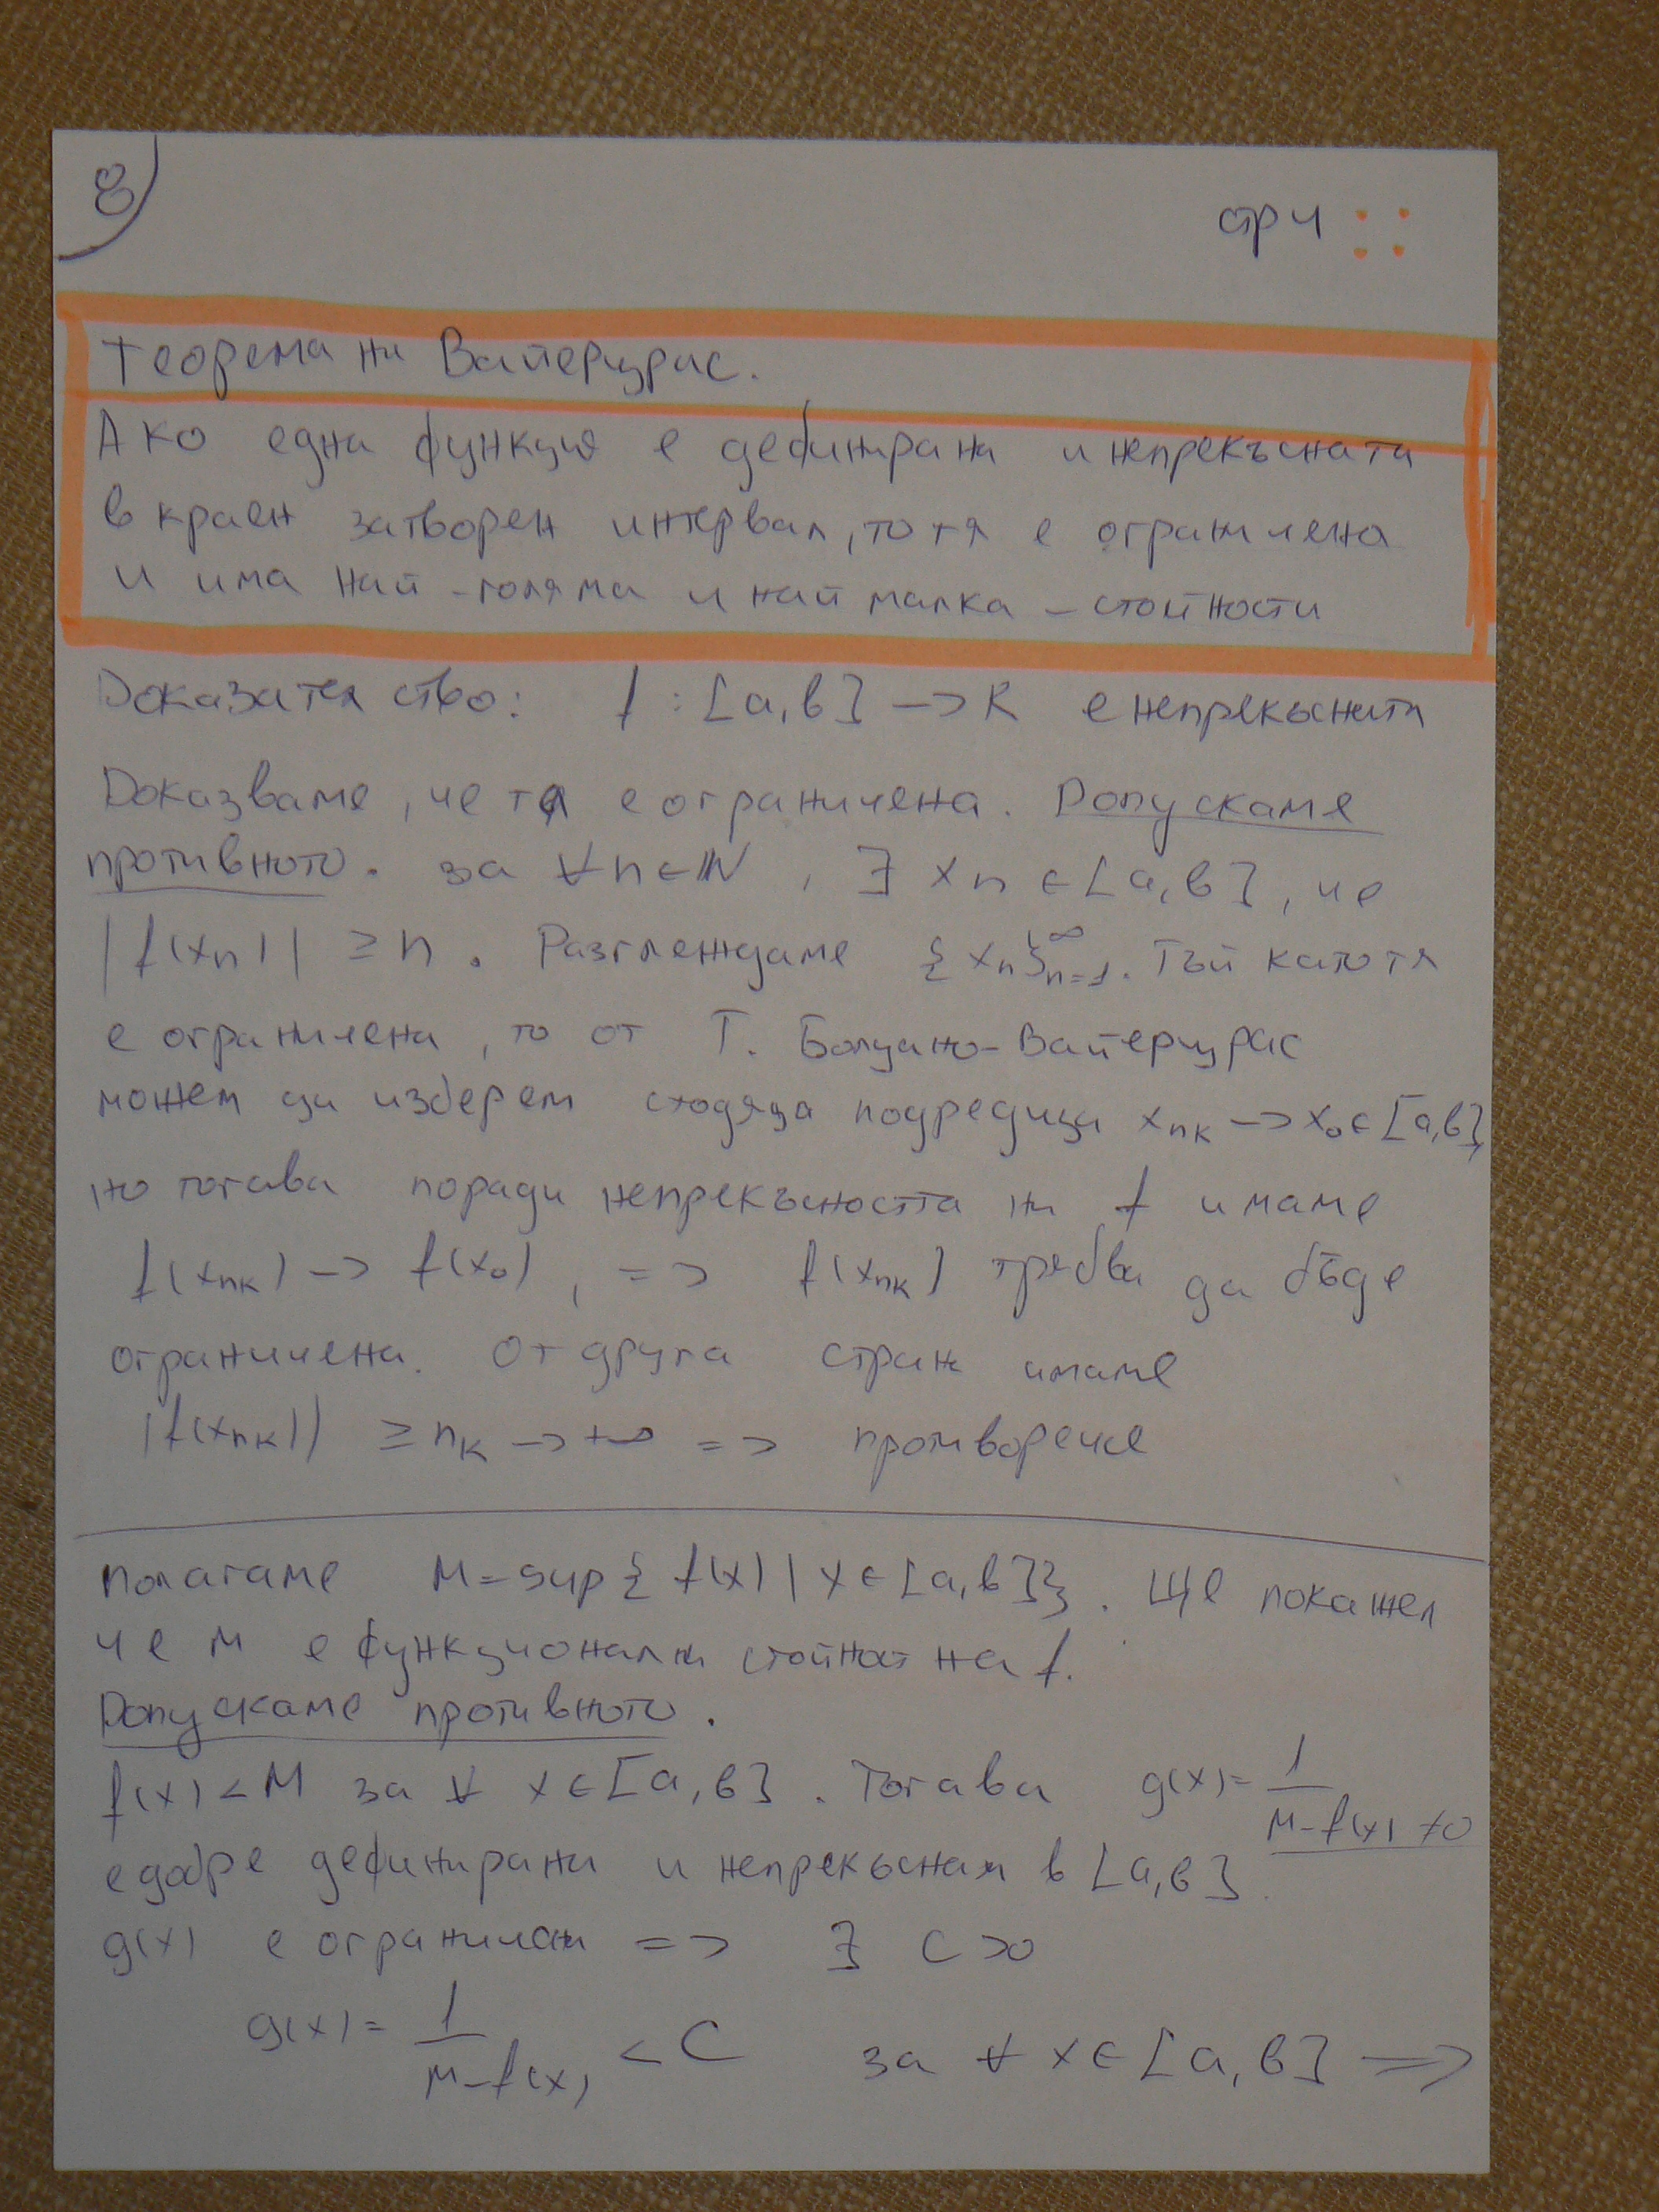 8
стр 4
Теорема на Вайерщрас.
Ако една функция е дефинирана и непрекъсната
в краен затворен интервал, то тя е ограничена
и има най-голяма и най малка - стойности
Доказателство: f : [a,b] -> R е непрекъсната
Доказваме, че тя е ограничена. Допускаме
противното. за ∀ n ∈ N, ∃ xn ∈ [a,b], че
|f(xn)| ≥ n. Разглеждаме {xn}∞n=1. Тъй като тя
е ограничена, то от Т. Болцано-Вайерщрас
можем да изберем сходяща подредица xnk -> x0 ∈ [a,b],
но тогава поради непрекъсността на f имаме
f(xnk) -> f(x0), => f(xnk) трябва да бъде
ограничена. От друга стран имаме
|f(xnk)| ≥ nk -> +∞ => противоречие
Полагаме M = sup{ f(x) | x ∈ [a,b]}. Ще покажем
че M е функционална стойност на f.
Допускаме противното.
f(x) < M за ∀ x ∈ [a,b]. Тогава g(x) = 1/(M-f(x)) ≠0
е добре дефинирана и непрекъсната в [a,b].
g(x) е ограничена => ∃ C>0
g(x) = 1/(M-f(x)) < C за ∀ x ∈ [a,b] =>